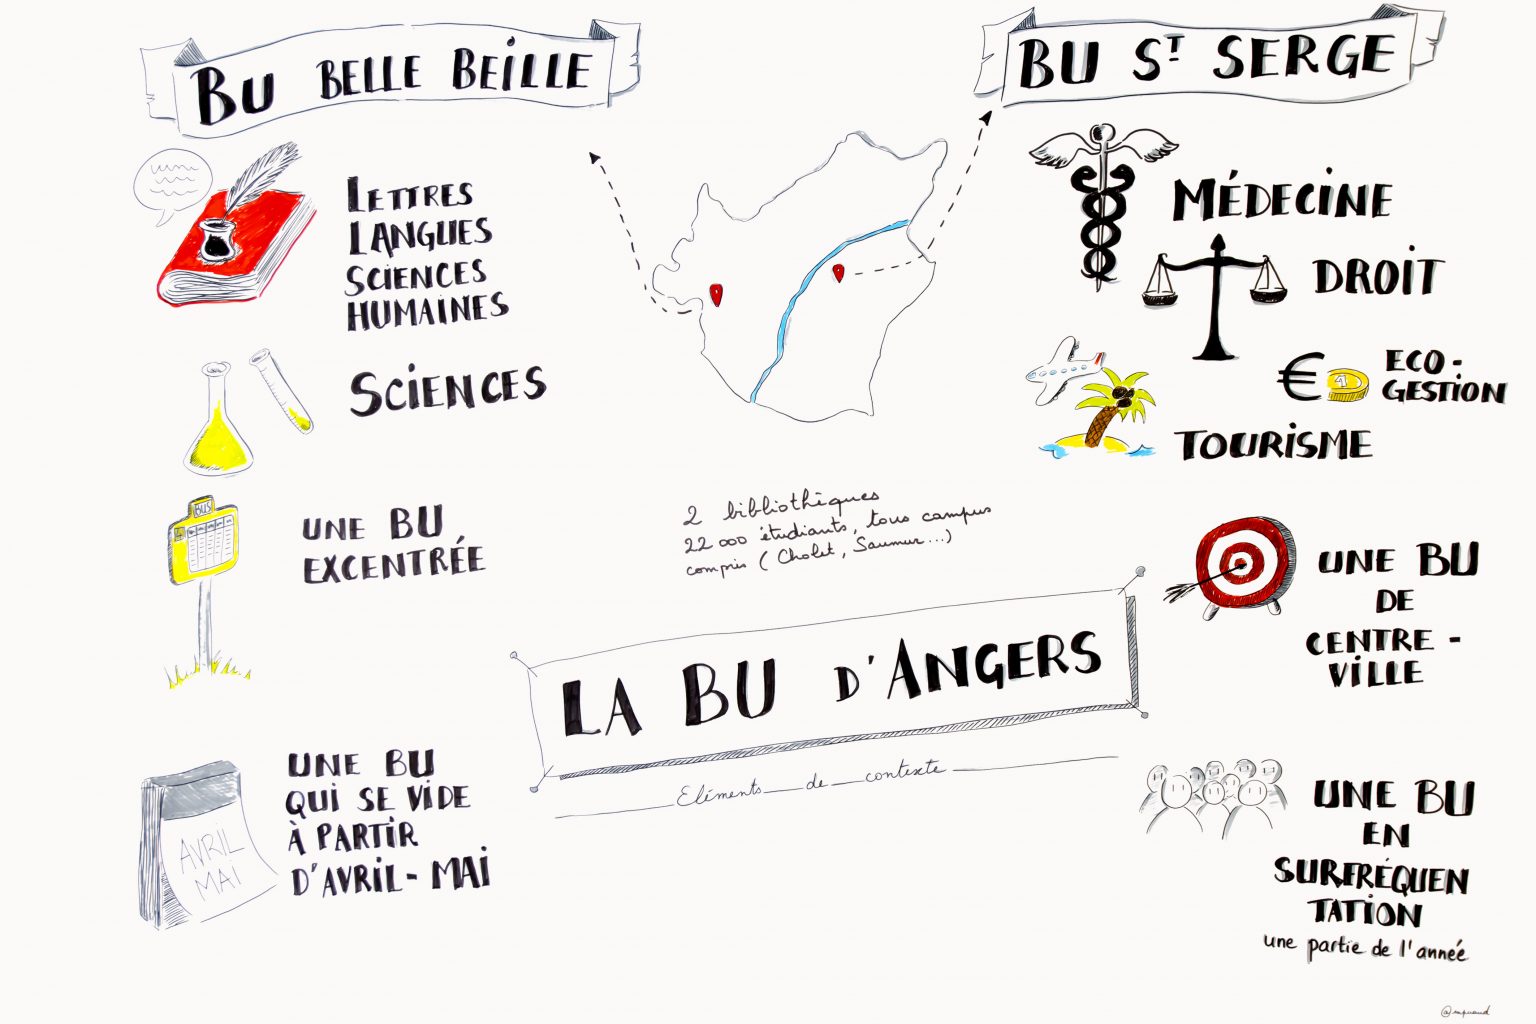 BU BELLE BEILLE
LETTRES
LANGUES
SCIENCES
HUMAINES
SCIENCES
BUS
UNE BU
EXCENTRÉE
UNE BU
QUI SE VIDE
À PARTIR
D'AVRIL-MAI
AVRIL
MAI
2 bibliothèques
22 000 étudiants, tous campus
compris (Cholet, Saumur...)
LA BU D'ANGERS
Eléments de contexte
BU ST SERGE
MÉDECINE
DROIT
€ 1
ECO-
GESTION
TOURISME
UNE BU
DE
CENTRE-
VILLE
UNE BU
EN
SURFRÉQUEN
TATION
une partie de l'année